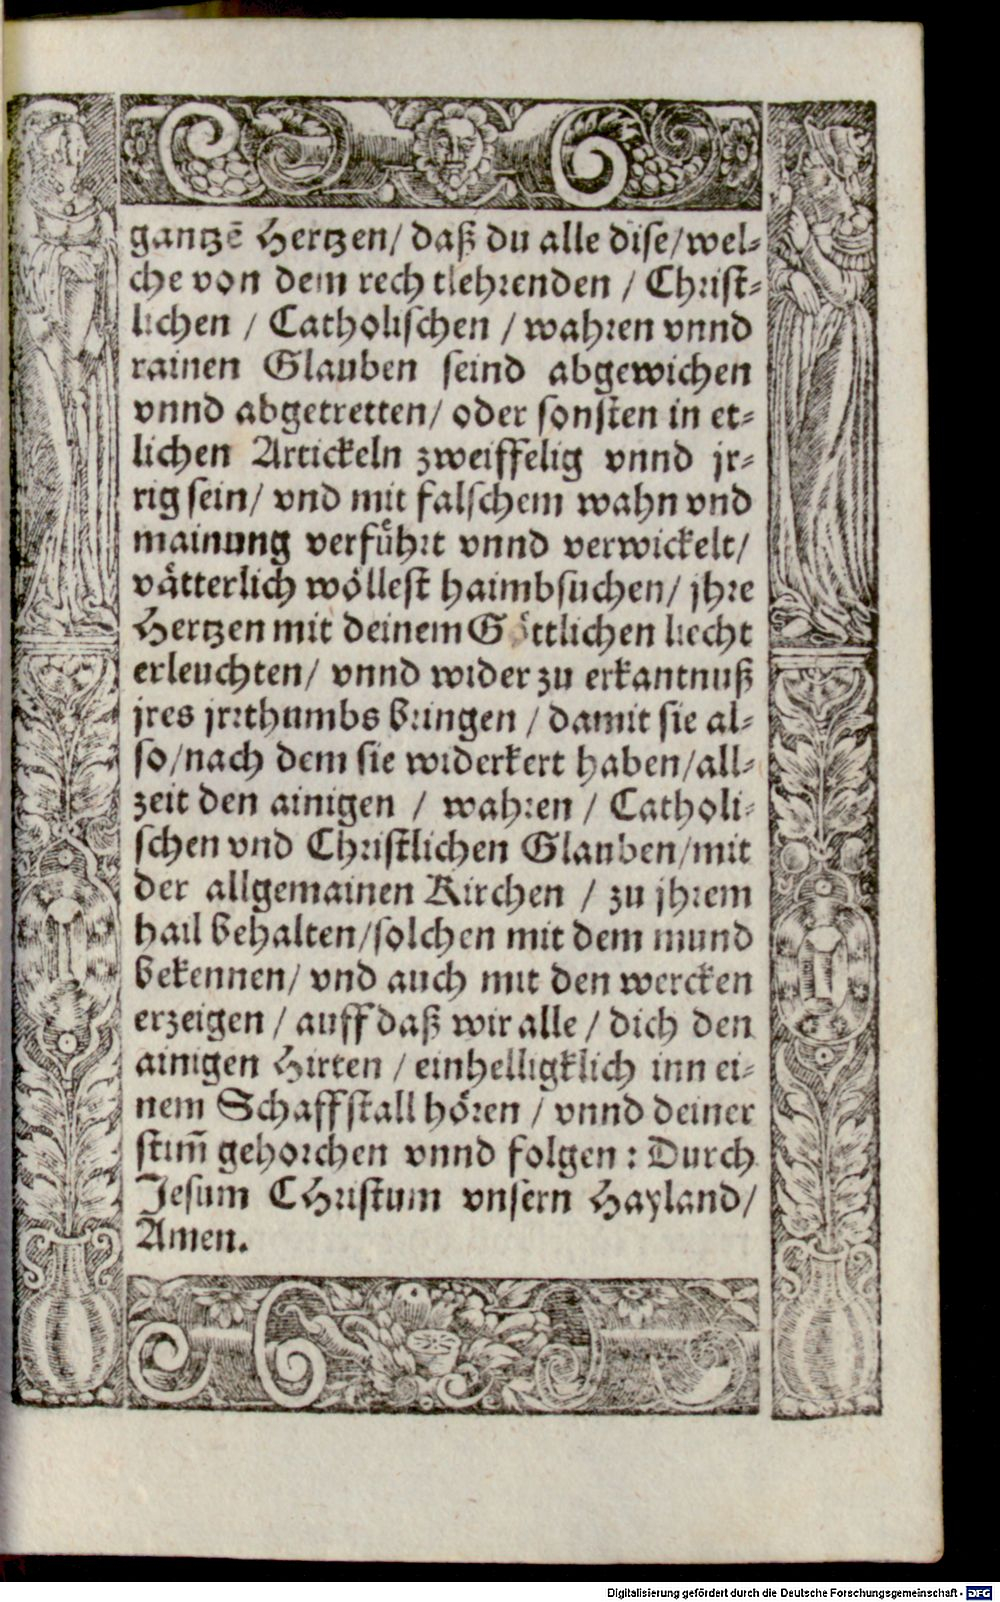 gantzē Hertzen/ daß du alle dise/wel-
che von dem rech tlehrenden / Christ-
lichen / Catholischen / wahren vnnd
rainen Glauben seind abgewichen
vnnd abgetretten/ oder sonsten in et-
lichen Artickeln zweiffelig vnnd jr-
rig sein/ vnd mit falschem wahn vnd
mainung verfuͤhrt vnnd verwickelt/
vaͤtterlich woͤllest haimbsuchen/ jhre
Hertzen mit deinem Goͤttlichen liecht
erleuchten/ vnnd wider zu erkantnuß
jres jrrthumbs bringen / damit sie al-
so/nach dem sie widerkert haben/all-
zeit den ainigen / wahren / Catholi-
schen vnd Christlichen Glauben/mit
der allgemainen Kirchen / zu jhrem
hail behalten/solchen mit dem mund
bekennen/ vnd auch mit den wercken
erzeigen / auff daß wir alle / dich den
ainigen Hirten / einhelligklich inn ei-
nem Schaffstall hoͤren / vnnd deiner
stim̄ gehorchen vnnd folgen: Durch
Jesum CHristum vnsern Hayland/
Amen.
Digitalisierung gefördert durch die Deutsche Forschungsgemeinschaft - DFG